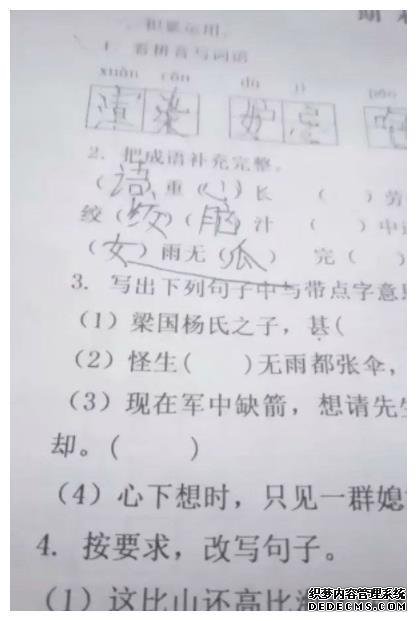 期
积累运用。
1. 看拼音写词语
xuàn rǎn dù jì
渲 染 妒 忌
2. 把成语补充完整。
(语)重(心)长 ( )劳
绞( )(脑)汁 ( )中
(女)雨无(瓜) 完( )
3. 写出下列句子中与带点字意思
(1)梁国杨氏之子，甚(
(2)怪生( )无雨都张伞，
(3)现在军中缺箭，想请先生
却。( )
(4)心下想时，只见一群媳
4. 按要求，改写句子。
(1)这比山还高比海
织梦内容管理系统
DEDECMS.COM